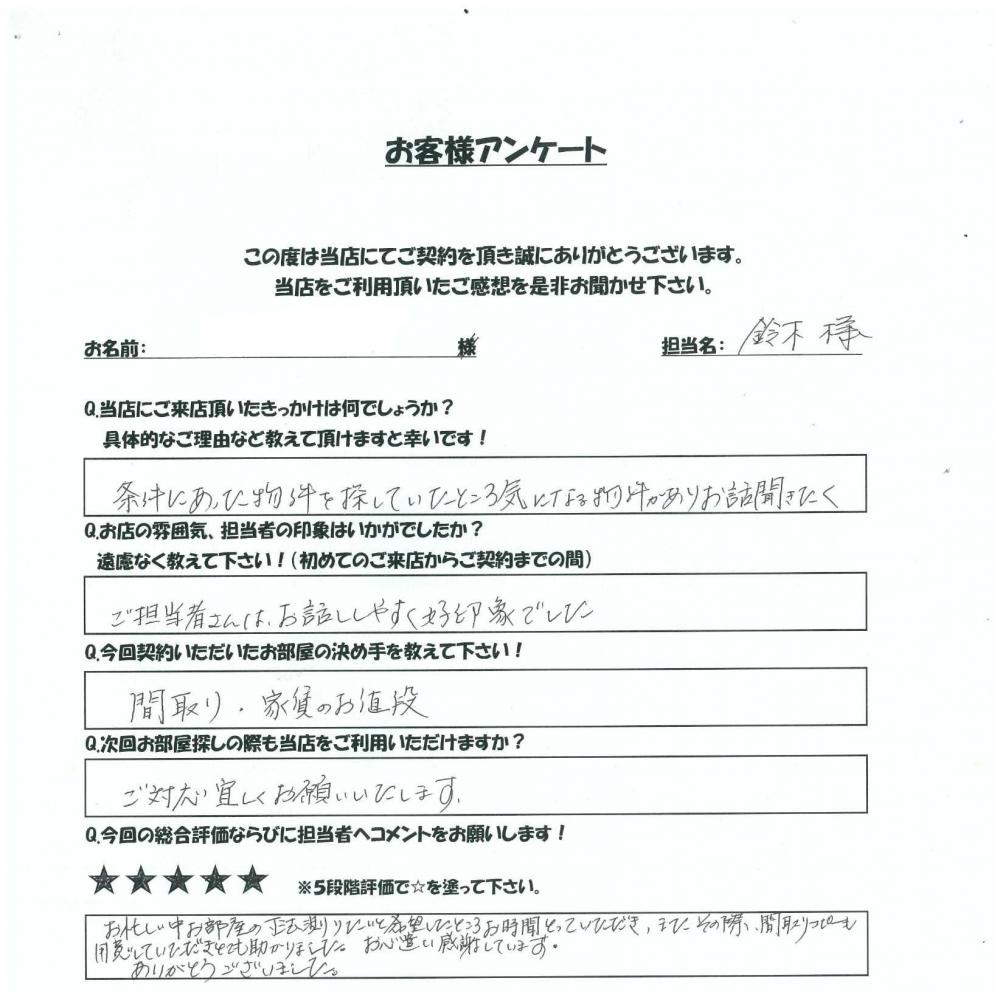 お客様アンケート
この度は当店にてご契約を頂き誠にありがとうございます。
当店をご利用頂いたご感想を是非お聞かせ下さい。
お名前: 様 担当名: 鈴木 様
Q.当店にご来店頂いたきっかけは何でしょうか？
具体的なご理由など教えて頂けますと幸いです！
条件にあった物件を探していたところ気になる物件がありお話聞きたく
Q.お店の雰囲気、担当者の印象はいかがでしたか？
遠慮なく教えて下さい！(初めてのご来店からご契約までの間)
ご担当者さんは、お話ししやすく好印象でした
Q.今回契約いただいたお部屋の決め手を教えて下さい！
間取り・家賃のお値段
Q.次回お部屋探しの際も当店をご利用いただけますか？
ご対応宜しくお願いいたします。
Q.今回の総合評価ならびに担当者へコメントをお願いします！
★★★★★ ※5段階評価で☆を塗って下さい。
お忙しい中お部屋の寸法測りたいと希望したところお時間とっていただき、またその際、間取りコピーも
用意していただきとても助かりました。お心遣い感謝しています。
ありがとうございました。